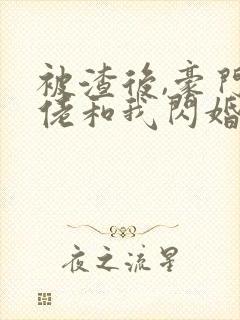 被渣後,豪門
佬和我閃婚
夜之流星